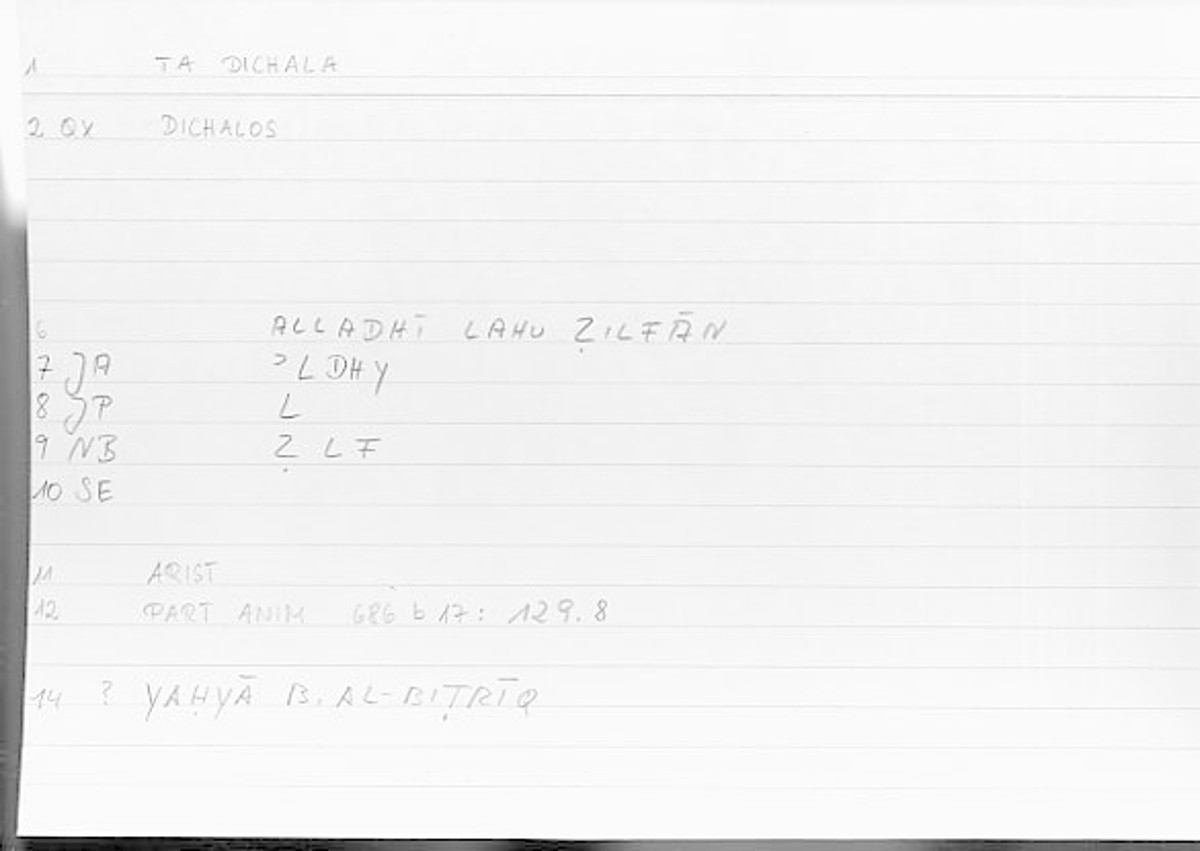 1 TA DICHALA
2 QX DICHALOS
6 ALLADHĪ LAHU ẒILFĀN
7 JA ʾLDHY
8 JP L
9 NB Ẓ LF
10 SE
11 ARIST
12 PART ANIM 686 b 17: 129.8
14 ? YAḤYĀ B. AL-BIṬRĪQ